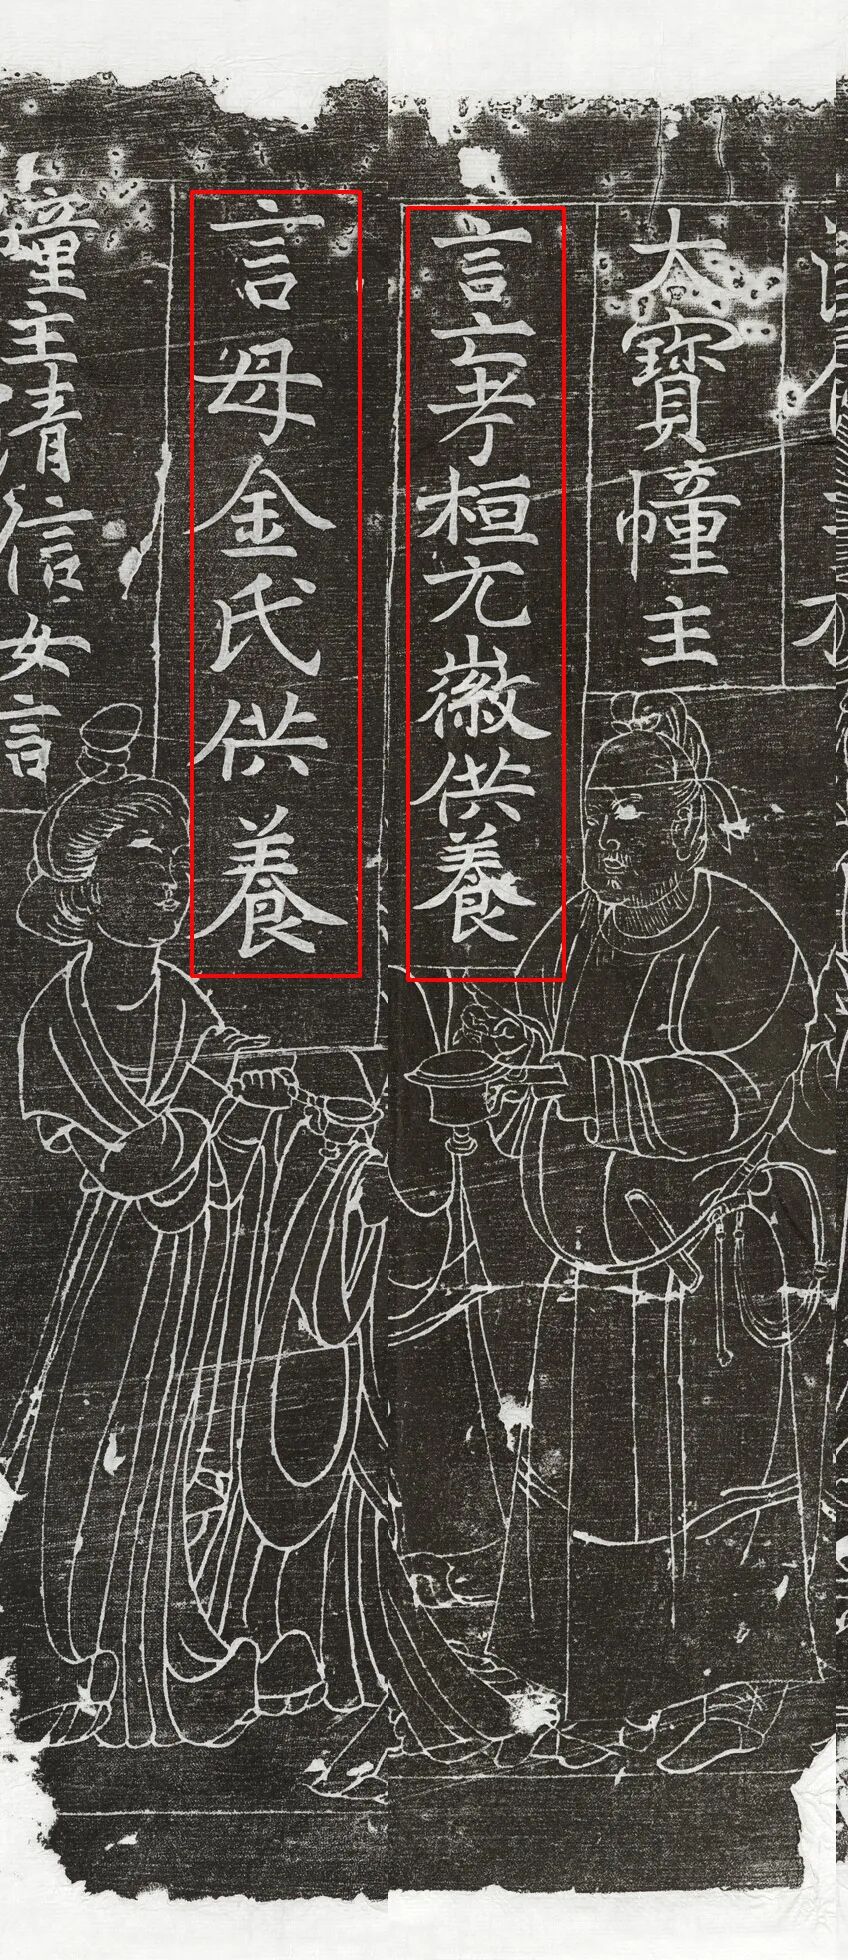 大寶幢主
言亡考桓元徽供養
言母金氏供養
幢主清信女言